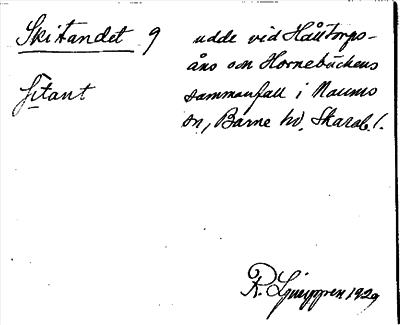 Skitandet 9 udde vid Håltorps-
åns och Hornebäckens
fitant sammanfall i Naums
sn, Barne hd, Skarab. l.
R. Ljunggren 1929